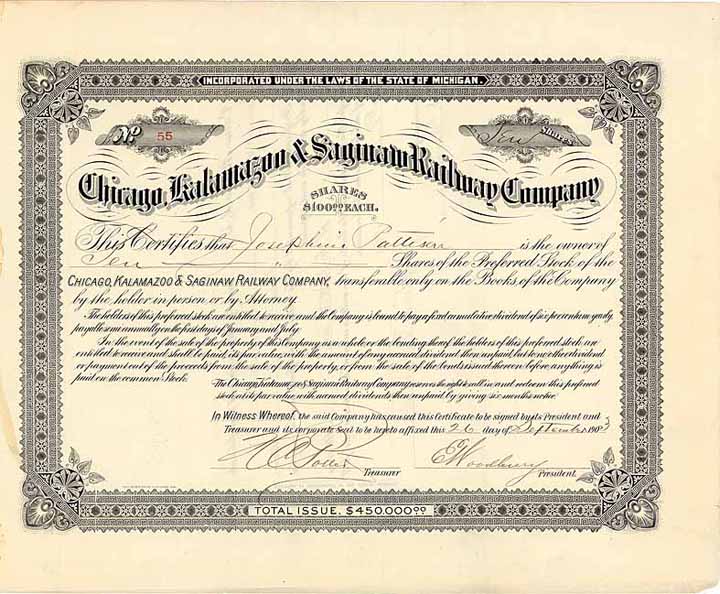 INCORPORATED UNDER THE LAWS OF THE STATE OF MICHIGAN.
No. 55
Ten Shares
Chicago, Kalamazoo & Saginaw Railway Company
SHARES
$100.00 EACH.
This Certifies that Josephine Pattison is the owner of
Ten Shares of the Preferred Stock of the
CHICAGO, KALAMAZOO & SAGINAW RAILWAY COMPANY, transferable only on the Books of the Company
by the holder in person or by Attorney.
The holders of this preferred stock are entitled to receive and the Company is bound to pay a fixed cumulative dividend of six per centum yearly
payable semi annually on the first days of January and July.
In the event of the sale of the property of this Company as a whole or the bonding thereof the holders of this preferred stock are
entitled to receive and shall be paid, its par value, with the amount of any accrued dividend then unpaid, but no other dividend
or payment out of the proceeds from the sale of the property, or from the sale of the bonds issued thereon before anything is
paid on the common Stock.
The Chicago, Kalamazoo & Saginaw Railway Company reserves the right to call in and redeem this preferred
stock at its par value, with earned dividends then unpaid by giving six months notice.
In Witness Whereof, the said Company has caused this Certificate to be signed by its President and
Treasurer and its corporate Seal to be hereto affixed this 26 day of September 1903
Treasurer
E Woodbury President.
TOTAL ISSUE, $450,000.00